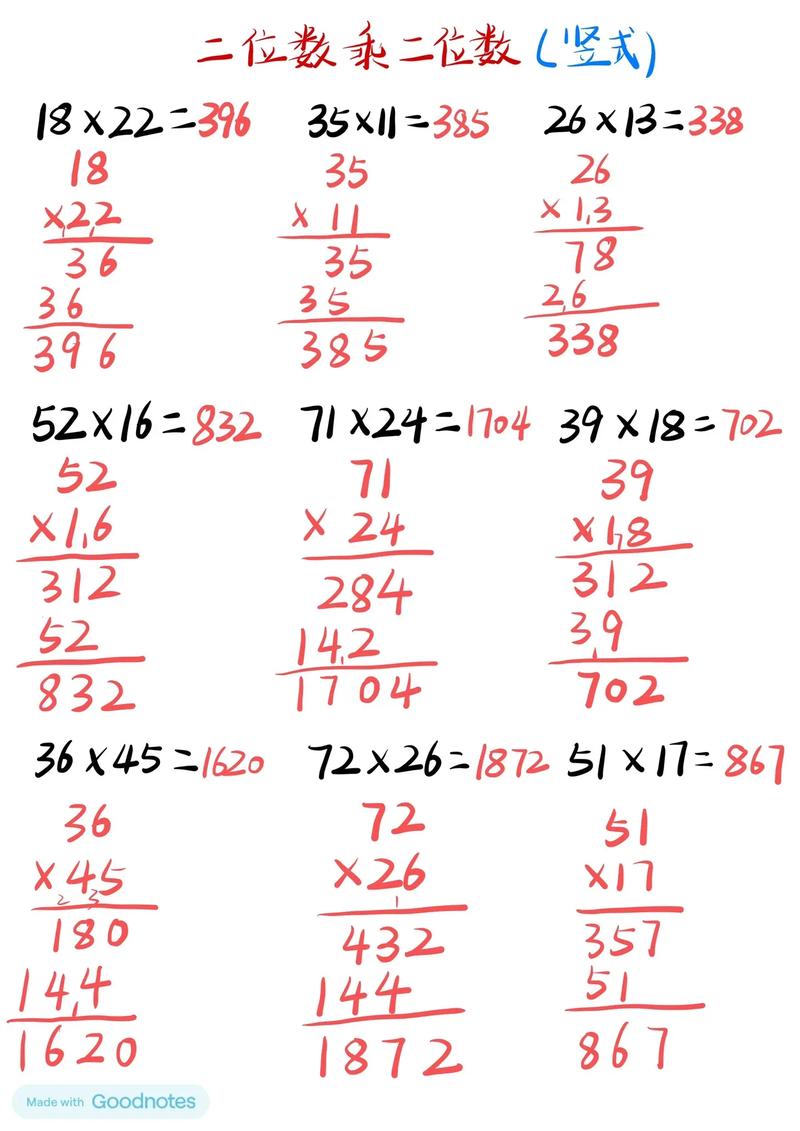 二位数乘二位数(竖式)
18×22=396 35×11=385 26×13=338
18 35 26
×22 ×11 ×13
36 35 78
36 35 26
396 385 338
52×16=832 71×24=1704 39×18=702
52 71 39
×16 ×24 ×18
312 284 312
52 142 39
832 1704 702
36×45=1620 72×26=1872 51×17=867
36 72 51
×45 ×26 ×17
2 3 1
180 432 357
144 144 51
1620 1872 867
Made with Goodnotes